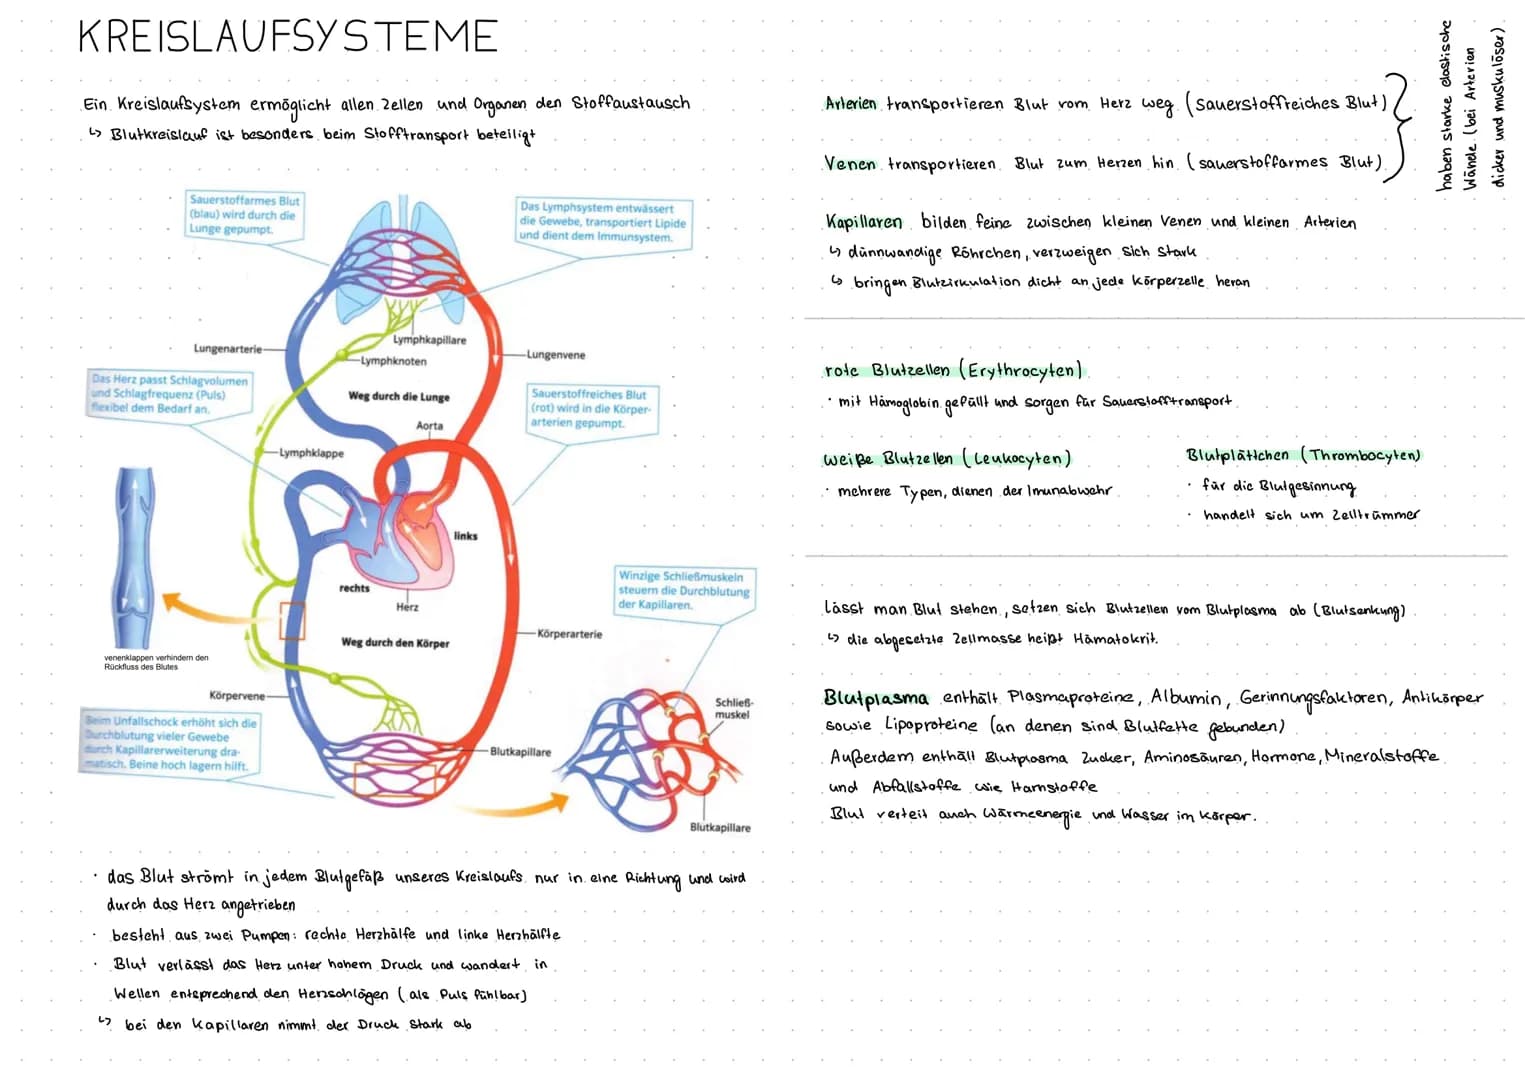 KREISLAUFSYSTEME
Ein Kreislaufsystem ermöglicht allen Zellen und Organen den Stoffaustausch
↳ Blutkreislauf ist besonders beim Stofftransport beteiligt
Sauerstoffarmes Blut
(blau) wird durch die
Lunge gepumpt.
Das Lymphsystem entwässert
die Gewebe, transportiert Lipide
und dient dem Immunsystem.
Lymphkapillare
Lungenarterie
Lymphknoten
Lungenvene
Das Herz passt Schlagvolumen
und Schlagfrequenz (Puls)
flexibel dem Bedarf an.
Weg durch die Lunge
Sauerstoffreiches Blut
(rot) wird in die Körper-
arterien gepumpt.
Aorta
Lymphklappe
links
rechts
Herz
Winzige Schließmuskeln
steuern die Durchblutung
der Kapillaren.
Weg durch den Körper
Körperarterie
venenklappen verhindern den
Rückfluss des Blutes
Körpervene
Schließ-
muskel
Beim Unfallschock erhöht sich die
Durchblutung vieler Gewebe
durch Kapillarerweiterung dra-
matisch. Beine hoch lagern hilft.
Blutkapillare
Blutkapillare
· das Blut strömt in jedem Blutgefäß unseres Kreislaufs nur in eine Richtung und wird
durch das Herz angetrieben
· besteht aus zwei Pumpen: rechte Herzhälfte und linke Herzhälfte
· Blut verlässt das Herz unter hohem Druck und wandert in
Wellen entsprechend den Herzschlägen (als Puls fühlbar)
↳ bei den Kapillaren nimmt der Druck stark ab
Arterien transportieren Blut vom Herz weg (sauerstoffreiches Blut)
Venen transportieren Blut zum Herzen hin (sauerstoffarmes Blut)
haben starke elastische
Wände (bei Arterien
dicker und muskulöser)
Kapillaren bilden feine zwischen kleinen Venen und kleinen Arterien
↳ dünnwandige Röhrchen, verzweigen sich stark
↳ bringen Blutzirkulation dicht an jede Körperzelle heran
rote Blutzellen (Erythrocyten)
· mit Hämoglobin gefüllt und sorgen für Sauerstofftransport
weiße Blutzellen (Leukocyten)
· mehrere Typen, dienen der Imunabwehr
Blutplättchen (Thrombocyten)
· für die Blutgesinnung
· handelt sich um Zelltrümmer
Lässt man Blut stehen, setzen sich Blutzellen vom Blutplasma ab (Blutsenkung)
↳ die abgesetzte Zellmasse heißt Hämatokrit.
Blutplasma enthält Plasmaproteine, Albumin, Gerinnungsfaktoren, Antikörper
sowie Lipoproteine (an denen sind Blutfette gebunden)
Außerdem enthält Blutplasma Zucker, Aminosäuren, Hormone, Mineralstoffe
und Abfallstoffe wie Harnstoffe
Blut verteit auch Wärmeenergie und Wasser im Körper.